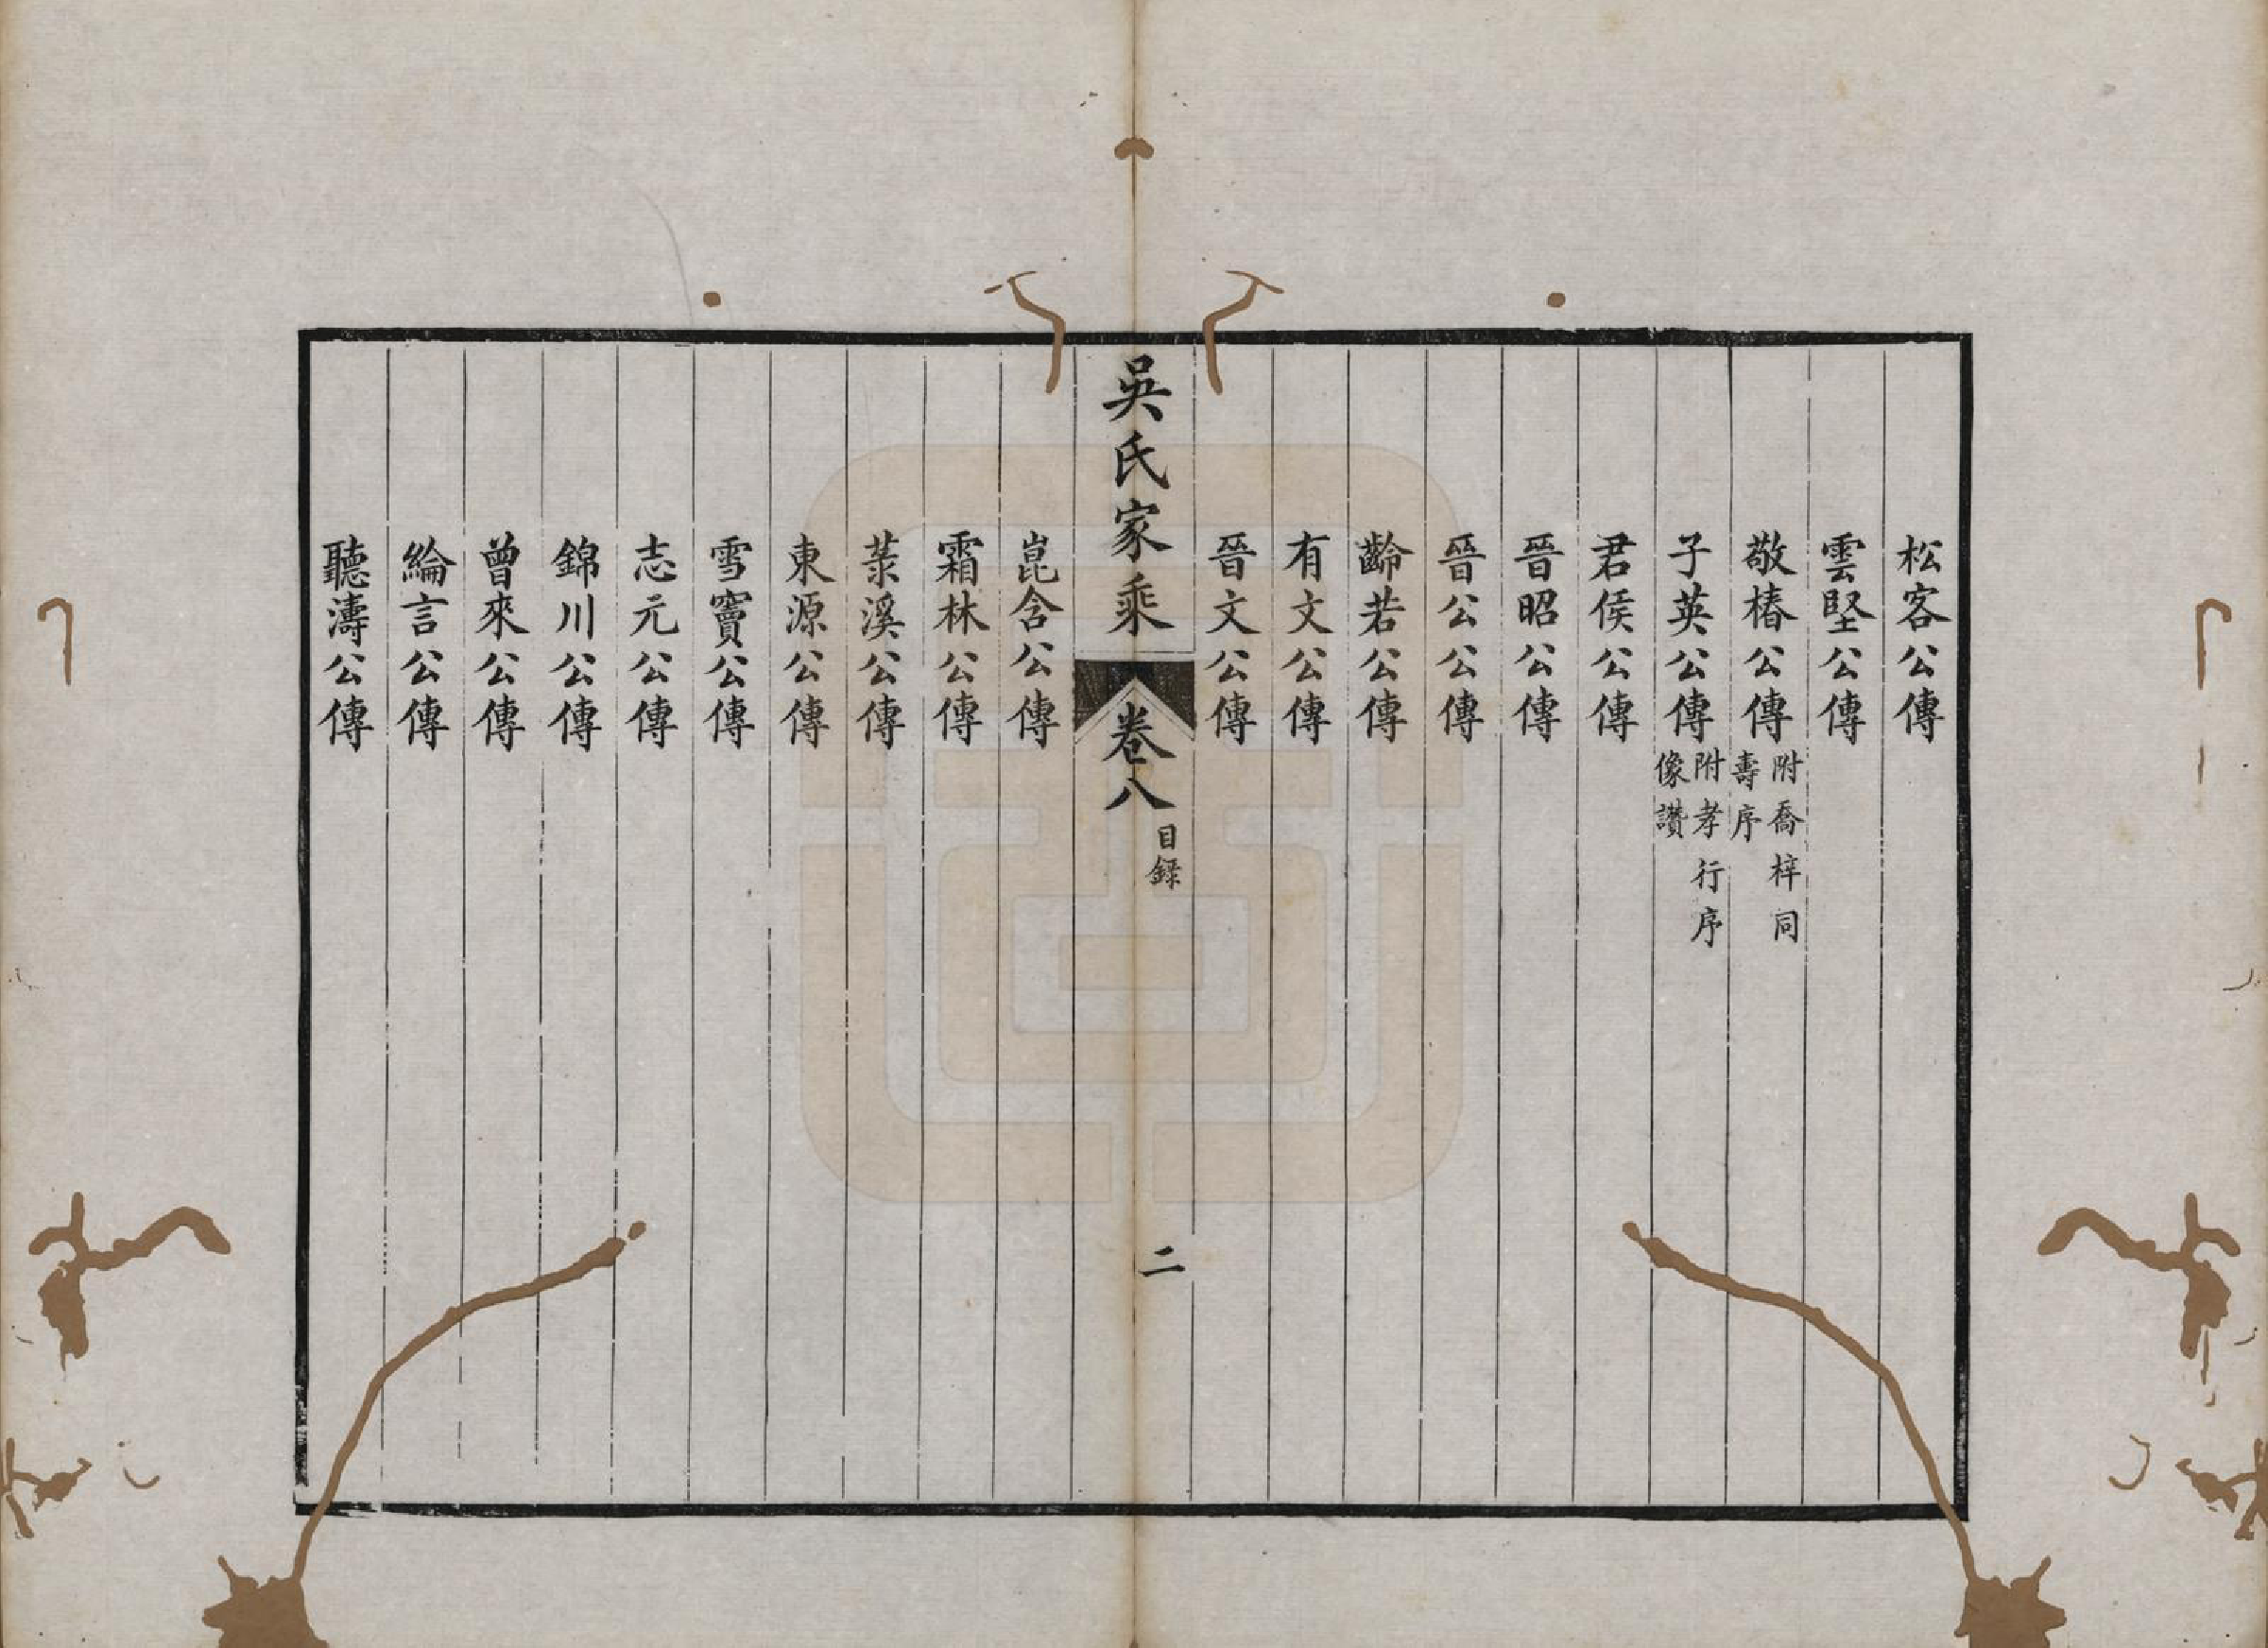 松客公傳
雲堅公傳
敬椿公傳附喬梓同壽序
子英公傳附孝行序像讚
君侯公傳
晉昭公傳
晉公公傳
齡若公傳
有文公傳
晉文公傳
吳氏家乘 卷八 目録 二
崑含公傳
霜林公傳
菉溪公傳
東源公傳
雪竇公傳
志元公傳
錦川公傳
曾來公傳
綸言公傳
聽濤公傳